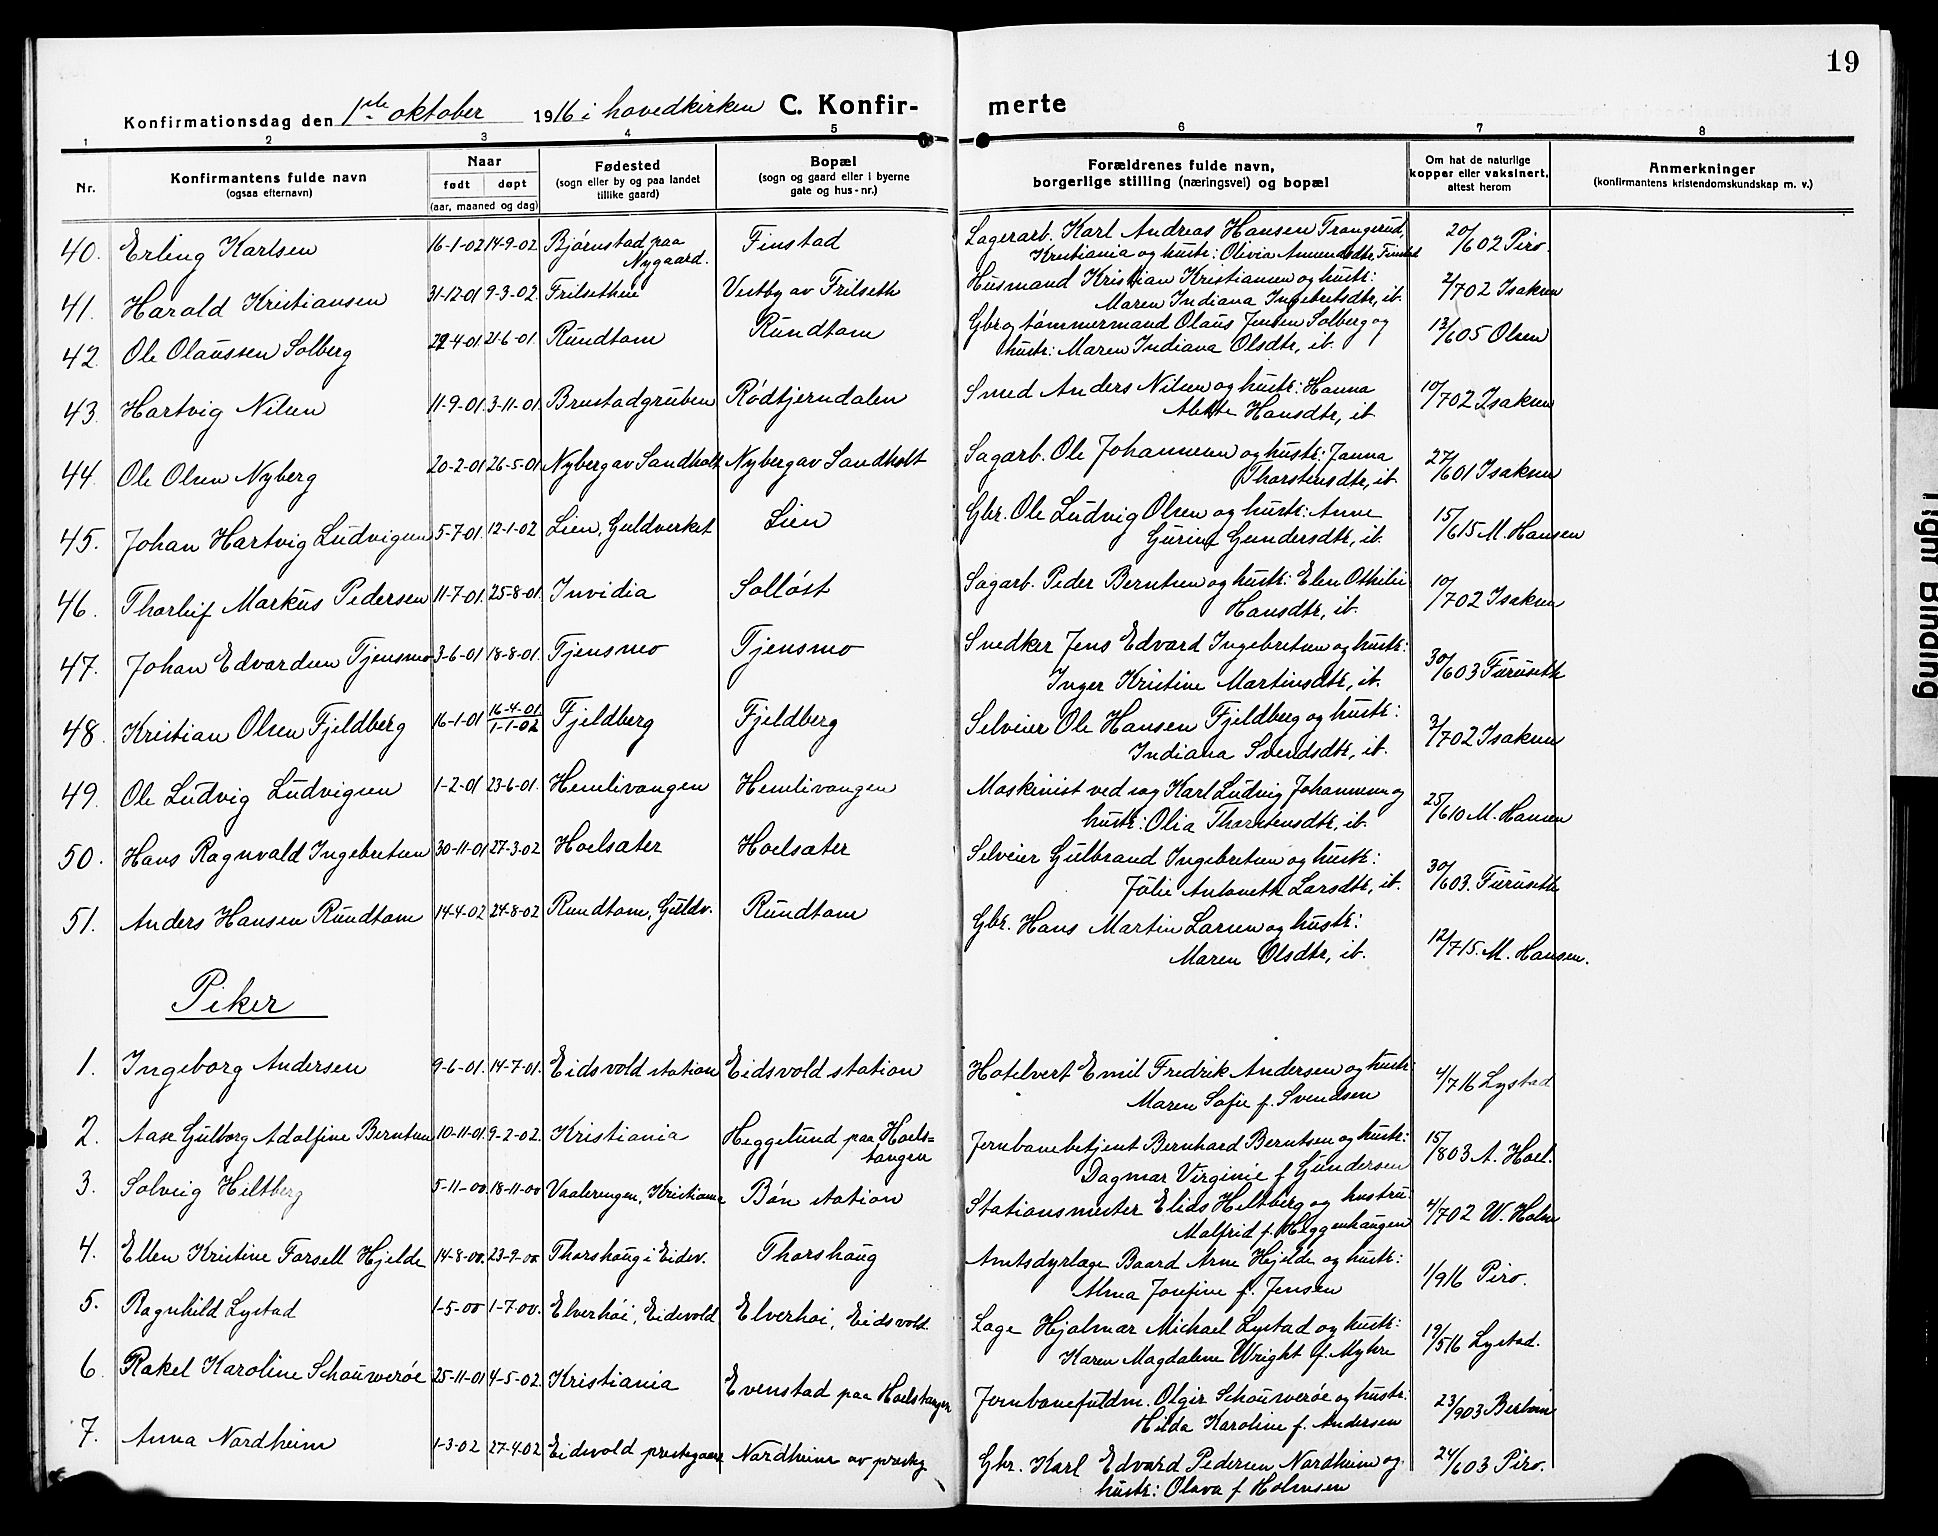 19
Konfirmationsdag den 1ste oktober 1916 i hovedkirken C. Konfir- merte
1 2 3 4 5 6 7 8
Nr. Konfirmantens fulde navn (ogsaa efternavn) Naar født døpt (aar, maaned og dag) Fødested (sogn eller by og paa landet tillike gaard) Bopæl (sogn og gaard eller i byerne gate og hus-nr.) Forældrenes fulde navn, borgerlige stilling (næringsvei) og bopæl Om hat de naturlige kopper eller vaksinert, attest herom Anmerkninger (konfirmantens kristendomskundskap m. v.)
40. Erling Karlsen 16-1-02 14-9-02 Bjørnstad paa Finstad Lagerarb. Karl Andreas Hansen Trangerud, 20/602 Piro.
Nygaard. Kristiania og hustr: Olivia Amundsdtr, Finstad
41. Harald Kristiansen 31-12-01 9-3-02. Frilsetheie Vestby av Frilseth Husmand Kristian Kristiansen og hustr: 2/702 Isaksen
Maren Indiana Ingebretsdtr, ib.
42. Ole Olaussen Solberg 22-4-01. 21-6-01. Rundtom Rundtom Gbr. og tømmermand Olaus Jensen Solberg og 13/605 Olsen
hustr: Maren Indiana Olsdtr, ib.
43. Hartvig Nilsen 11-9-01 3-11-01. Brustadgruben Rødtjerndalen Smed Anders Nilsen og hustr: Hanna 10/702 Isaksen
Alette Hansdtr, ib
44. Ole Olsen Nyberg 20-2-01 26-5-01 Nyberg av Sandholt Nyberg av Sandholt Sagarb. Ole Johannesen og hustr: Janna 27/601 Isaksen
Thorstensdtr, ib
45. Johan Hartvig Ludvigsen 5-7-01. 12-1-02 Lien, Guldverket Lien Gbr. Ole Ludvig Olsen og hustr: Anne 15/615 M. Hansen
Gurine Gundersdtr, ib.
46. Thorleif Markus Pedersen 11-7-01. 25-8-01. Invidia Solløst Sagarb. Peder Berntsen og hustr: Elen Othilie 10/702 Isaksen
Hansdtr, ib.
47. Johan Edvardsen Tjensmo 3-6-01 18-8-01. Tjensmo Tjensmo Snedker Jens Edvard Ingebretsen og hustr: 30/603 Furuseth
Inger Kristine Martinsdtr, ib.
48. Kristian Olsen Fjeldberg 16-1-01 16-4-01 1-1-02 Fjeldberg Fjeldberg Selveier Ole Hansen Fjeldberg og hustr: 2/702 Isaksen
Indiana Svendsdtr, ib.
49. Ole Ludvig Ludvigsen 1-2-01 23-6-01. Hemlivangen Hemlivangen Maskinist ved sag Karl Ludvig Johannesen og 25/610 M. Hansen
hustr: Olia Thorstensdtr, ib.
50. Hans Ragnvald Ingebretsen 30-11-01 27-3-02 Hoelsæter Hoelsæter Selveier Gulbrand Ingebretsen og hustr: 30/603. Furuseth
Julie Antoneth Larsdtr, ib.
51. Anders Hansen Rundtom 14-4-02 24-8-02 Rundtom, Guldv. Rundtom Gbr. Hans Martin Larsen og hustr: 12/715. M. Hansen.
Maren Olsdtr, ib.
Piker
1. Ingeborg Andersen 9-6-01. 14-7-01. Eidsvold station Eidsvold station Hotelvert Emil Fredrik Andersen og hustr: 4/716 Lystad
Maren Sofie f. Svendsen
2. Aase Gulborg Adolfine Berntsen 10-11-01. 9-2-02. Kristiania Heggelund paa Hoels= Jernbanebetjent Bernhard Berntsen og hustr: 15/803 A. Hoel.
tangen Dagmar Virginie f. Gundersen
3. Solveig Hiltberg 5-11-00. 18-11-00 Vaalerengen, Kristiania Bøn station Stationsmester Elids Hiltberg og hustru 4/702 W. Holm
Malfrid f. Heggenhaugen
4. Ellen Kristine Forsell Hjelde 14-8-00. 23-9-00. Thorshaug i Eidsv. Thorshaug Amtsdyrlæge Baard Arne Hjelde og hustr: 1/916 Piro.
Alma Josefine f. Jensen
5. Ragnhild Lystad 1-5-00 1-7-00. Elverhøi, Eidsvold Elverhøi, Eidsvold. Læge Hjalmar Michael Lystad og hustr: 19/516 Lystad.
Karen Magdalene Wright f. Myhre
6. Rakel Karoline Schouwerøe 25-11-01 4-5-02. Kristiania Evenstad paa Hoelstangen Jernbanefuldm. Olgir Schouwerøe og hustr: 23/903
Hilda Karoline f. Andersen
7. Anna Nordheim 1-3-02 27-4-02 Eidsvold prestegaard Nordheim av presteg Gbr. Karl Edvard Pedersen Nordheim og 24/603 Piro.
hustr: Olava f. Holmsen
Tight Binding